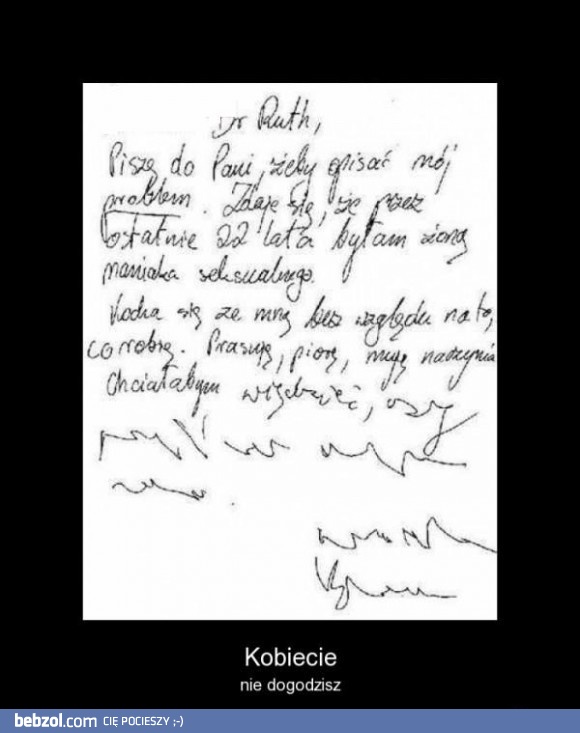 Dr Ruth,
Piszę do Pani, żeby opisać mój
problem. Zdaje się, że przez
ostatnie 22 lata byłam żoną
maniaka seksualnego.
Kocha się ze mną bez względu na to,
co robię. Prasuję, piorę, myję naczynia
Chciałabym wiedzieć, czy
Kobiecie
nie dogodzisz
bebzol.com CIĘ POCIESZY ;-)